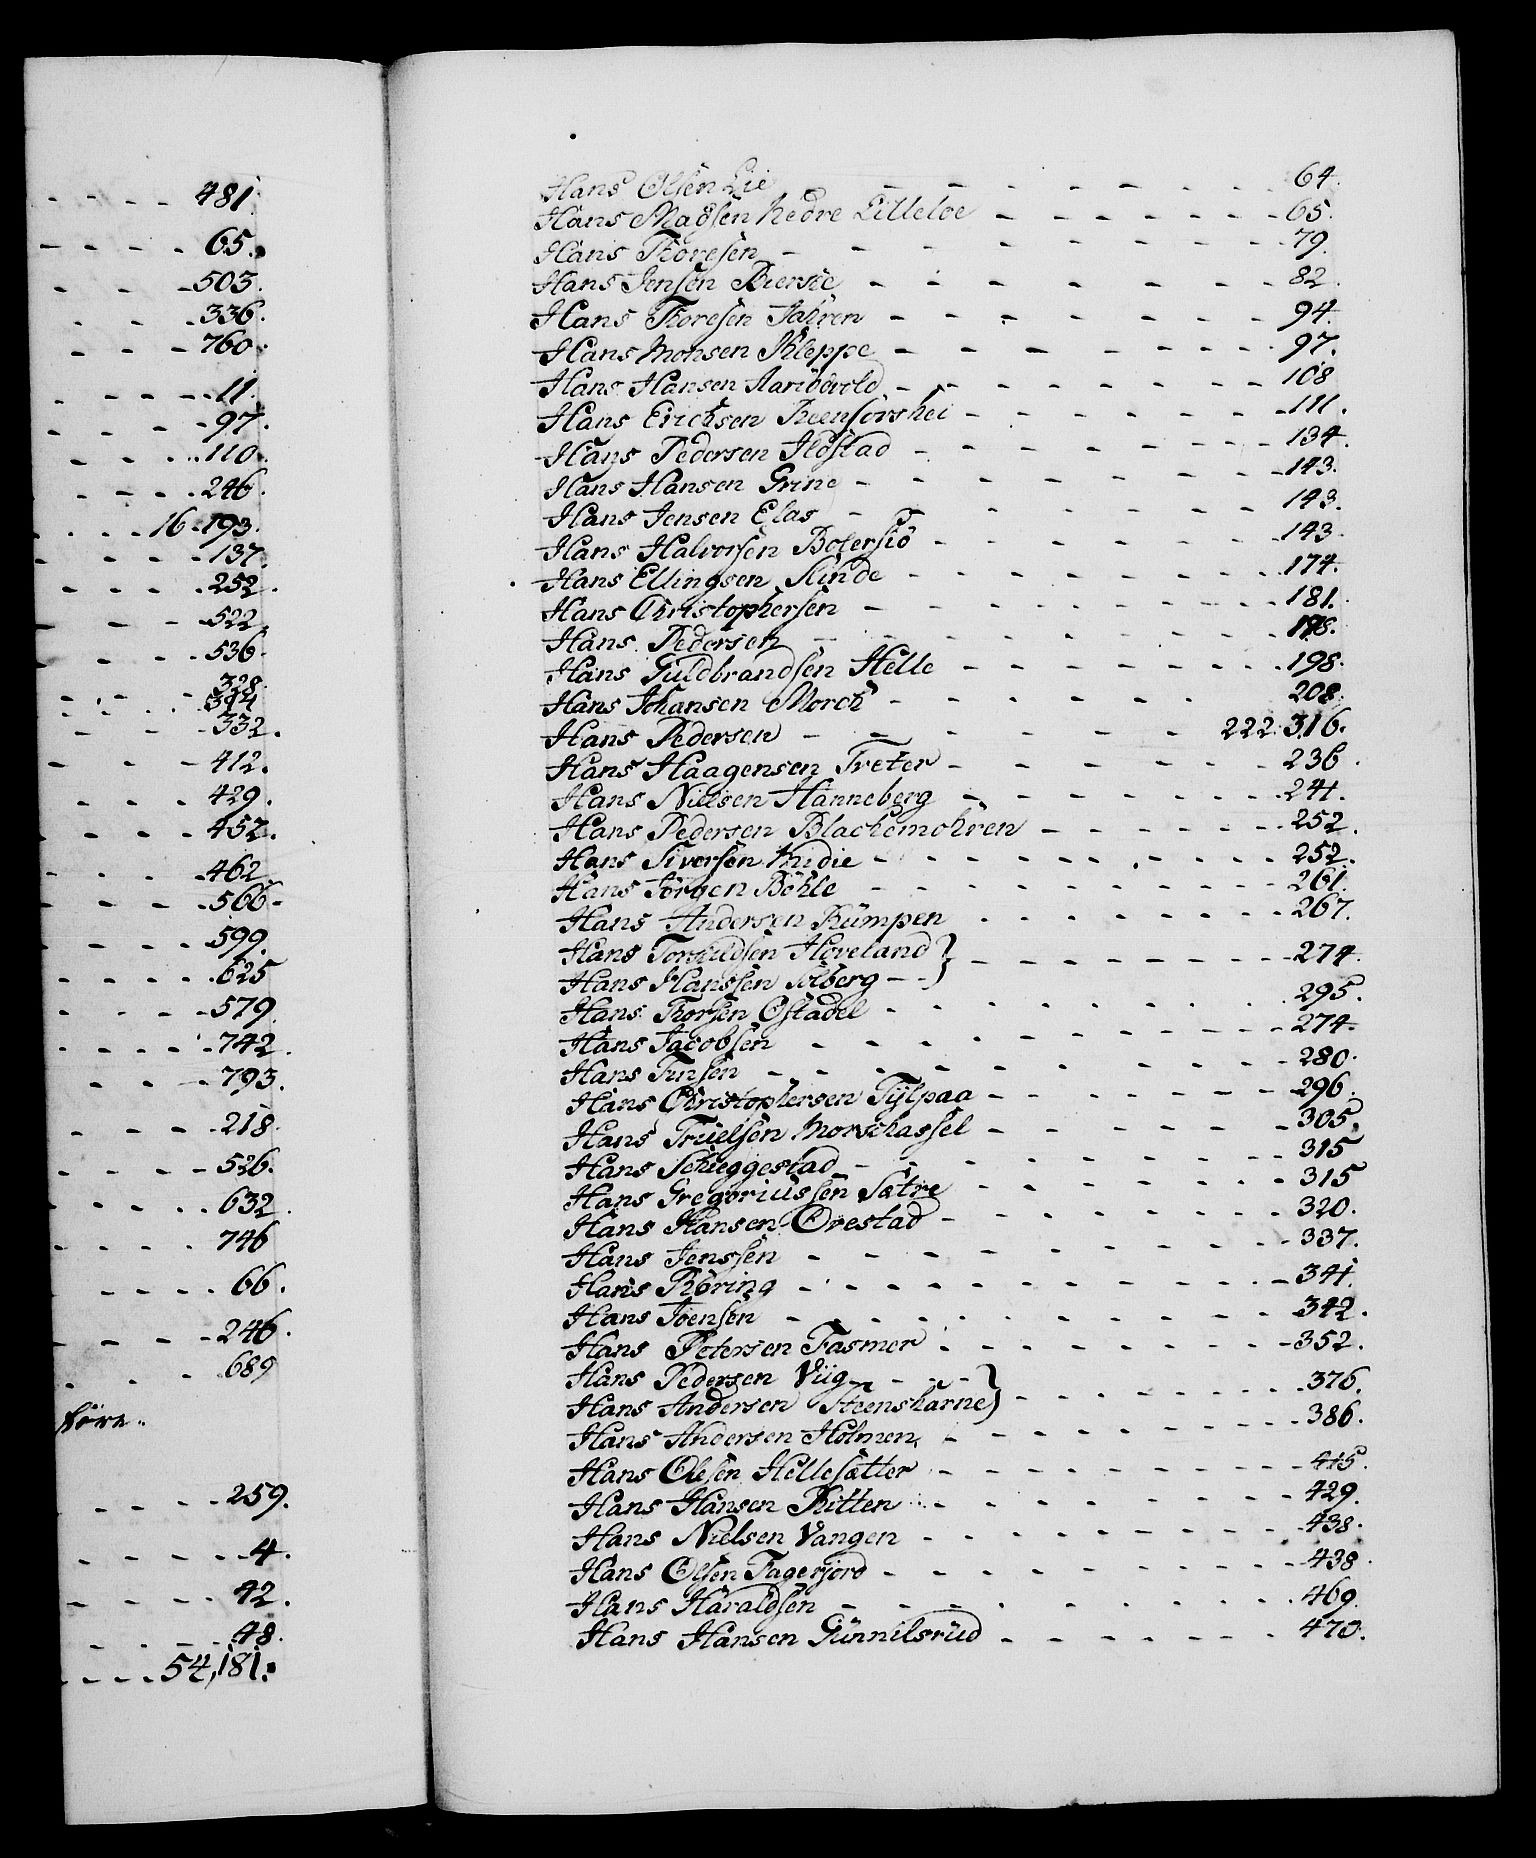 481.
65.
503.
336.
760.
11.
97.
110.
246.
16. 193.
137.
252.
522
536.
328.
314
332.
412.
429.
452.
462.
566.
599.
625
579.
742.
793.
218.
526.
632.
746
66.
246.
689
259.
4.
42.
48.
54, 181.
Hans Olsen Lie - - - 64.
Hans Madsen Nedre Lilleloe - - - 65.
Hans Thoresen - - - 79.
Hans Jensen Biersöe - - - 82.
Hans Thoresen Jahren - - - 94.
Hans Monsen Kleppe - - - 97.
Hans Hansen - - - 108
Hans Erichsen - - - 111.
Hans Pedersen Ildstad - - - 134.
Hans Hansen Grine - - - 143.
Hans Jensen Elas - - - 143.
Hans Halvorsen Botersiö - - - 143.
Hans Ellingsen Slinde - - - 174.
Hans Christophersen - - - 181.
Hans Pedersen - - - 198.
Hans Guldbrandsen Helle - - - 198.
Hans Johansen Morch - - - 208.
Hans Pedersen - - - 222. 316.
Hans Haagensen Treter - - - 236.
Hans Nielsen Hanneberg - - - 241.
Hans Pedersen Blachemohren - - - 252.
Hans Siversen - - - 252.
Hans Jørgen Böhle - - - 261.
Hans Andersen Rümpen - - - 267.
Hans Torkildsen Hoveland }
Hans Hanssen Solberg - - } - - - 274.
Hans Thorsen Ostadel - - - 295.
Hans Jacobsen - - - 274.
Hans Tunsen - - - 280.
Hans Christophersen Tÿlpaa - - - 296.
Hans Truelsen Morschassel - - - 305.
Hans Schieggestad - - - 315
Hans Gregoriussen Sætre - - - 315
Hans Hansen Orestad - - - 320.
Hans Jenssen - - - 337.
Hans Röring - - - 341.
Hans Joensen - - - 342.
Hans Petersen Fasmer - - - 352.
Hans Pedersen Viig - - - }
Hans Andersen Steenskarne } - - - 376.
Hans Andersen Holmen - - - 386.
Hans Olesen Hellesætter - - - 415.
Hans Hansen Ritten - - - 429.
Hans Nielsen Vangen - - - 438.
Hans Olsen Fagerjord - - - 438.
Hans Haraldsen - - - 469.
Hans Hansen Günnilsrüd - - - 470.